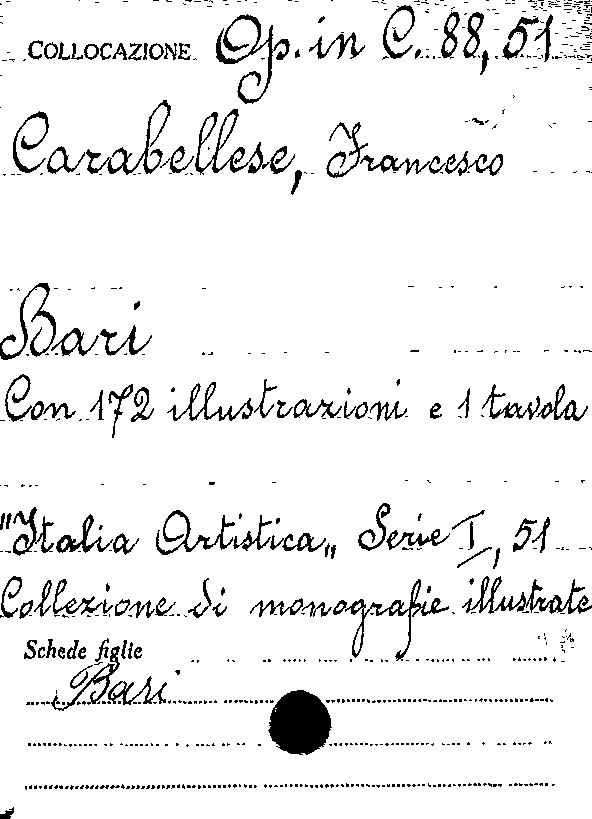 COLLOCAZIONE Op. in C. 88, 51
Carabellese, Francesco
Bari
Con 172 illustrazioni e 1 tavola
"Italia Artistica„ Serie I, 51
Collezione di monografie illustrate
Schede figlie
Bari